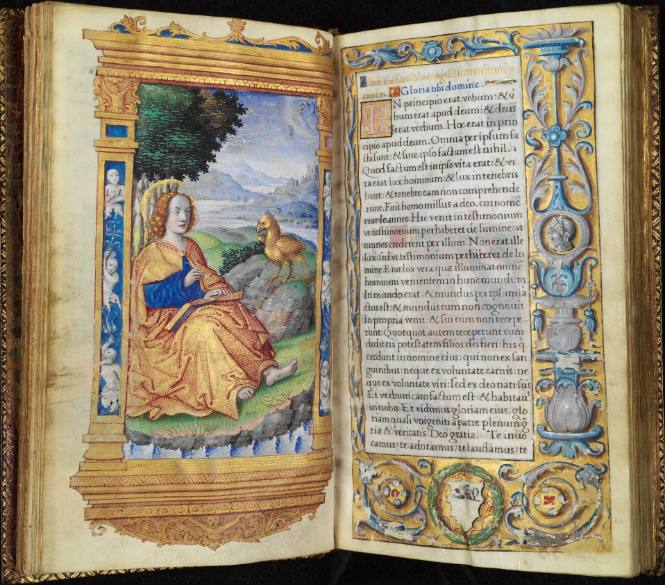 Gloria tibi domine
IN principio erat verbum: & v̄
bum erat apud deum: & deus
erat verbum. Hoc erat in prin
cipio apud deum. Omnia per ipsum fa
cta sunt: & sine ipso factum est nihil.
Quod factum est in ipso vita erat: & vi
ta erat lux hominum: & lux in tenebris
lucet: & tenebre eam non comprehende
runt. Fuit homo missus a deo, cui nomē
erat Ioannes. Hic venit in testimonium
vt testimonium perhiberet de lumine: vt
omnes crederent per illum. Non erat ille
lux: sed vt testimonium perhiberet de lu
mine. Erat lux vera quæ illuminat omnē
hominem venientem in hunc mundum
In mundo erat & mundus per ipsum fa
ctus est: & mundus eum non cognouit
In propria venit: & sui eum non recepe
runt. Quotquot autem receperunt eum
dedit eis potestatem filios dei fieri: his q̄
credunt in nomine eius: qui non ex san
guinibus: neque ex voluntate carnis: ne
que ex voluntate viri: sed ex deo nati sūt
Et verbum caro factum est: & habitauit
in nobis Et vidimus gloriam eius, glo
riam quasi vnigeniti a patre plenum grā
tiæ & veritatis. Deo gratias. Te inuo
camus: te adoramus: te laudamus: te